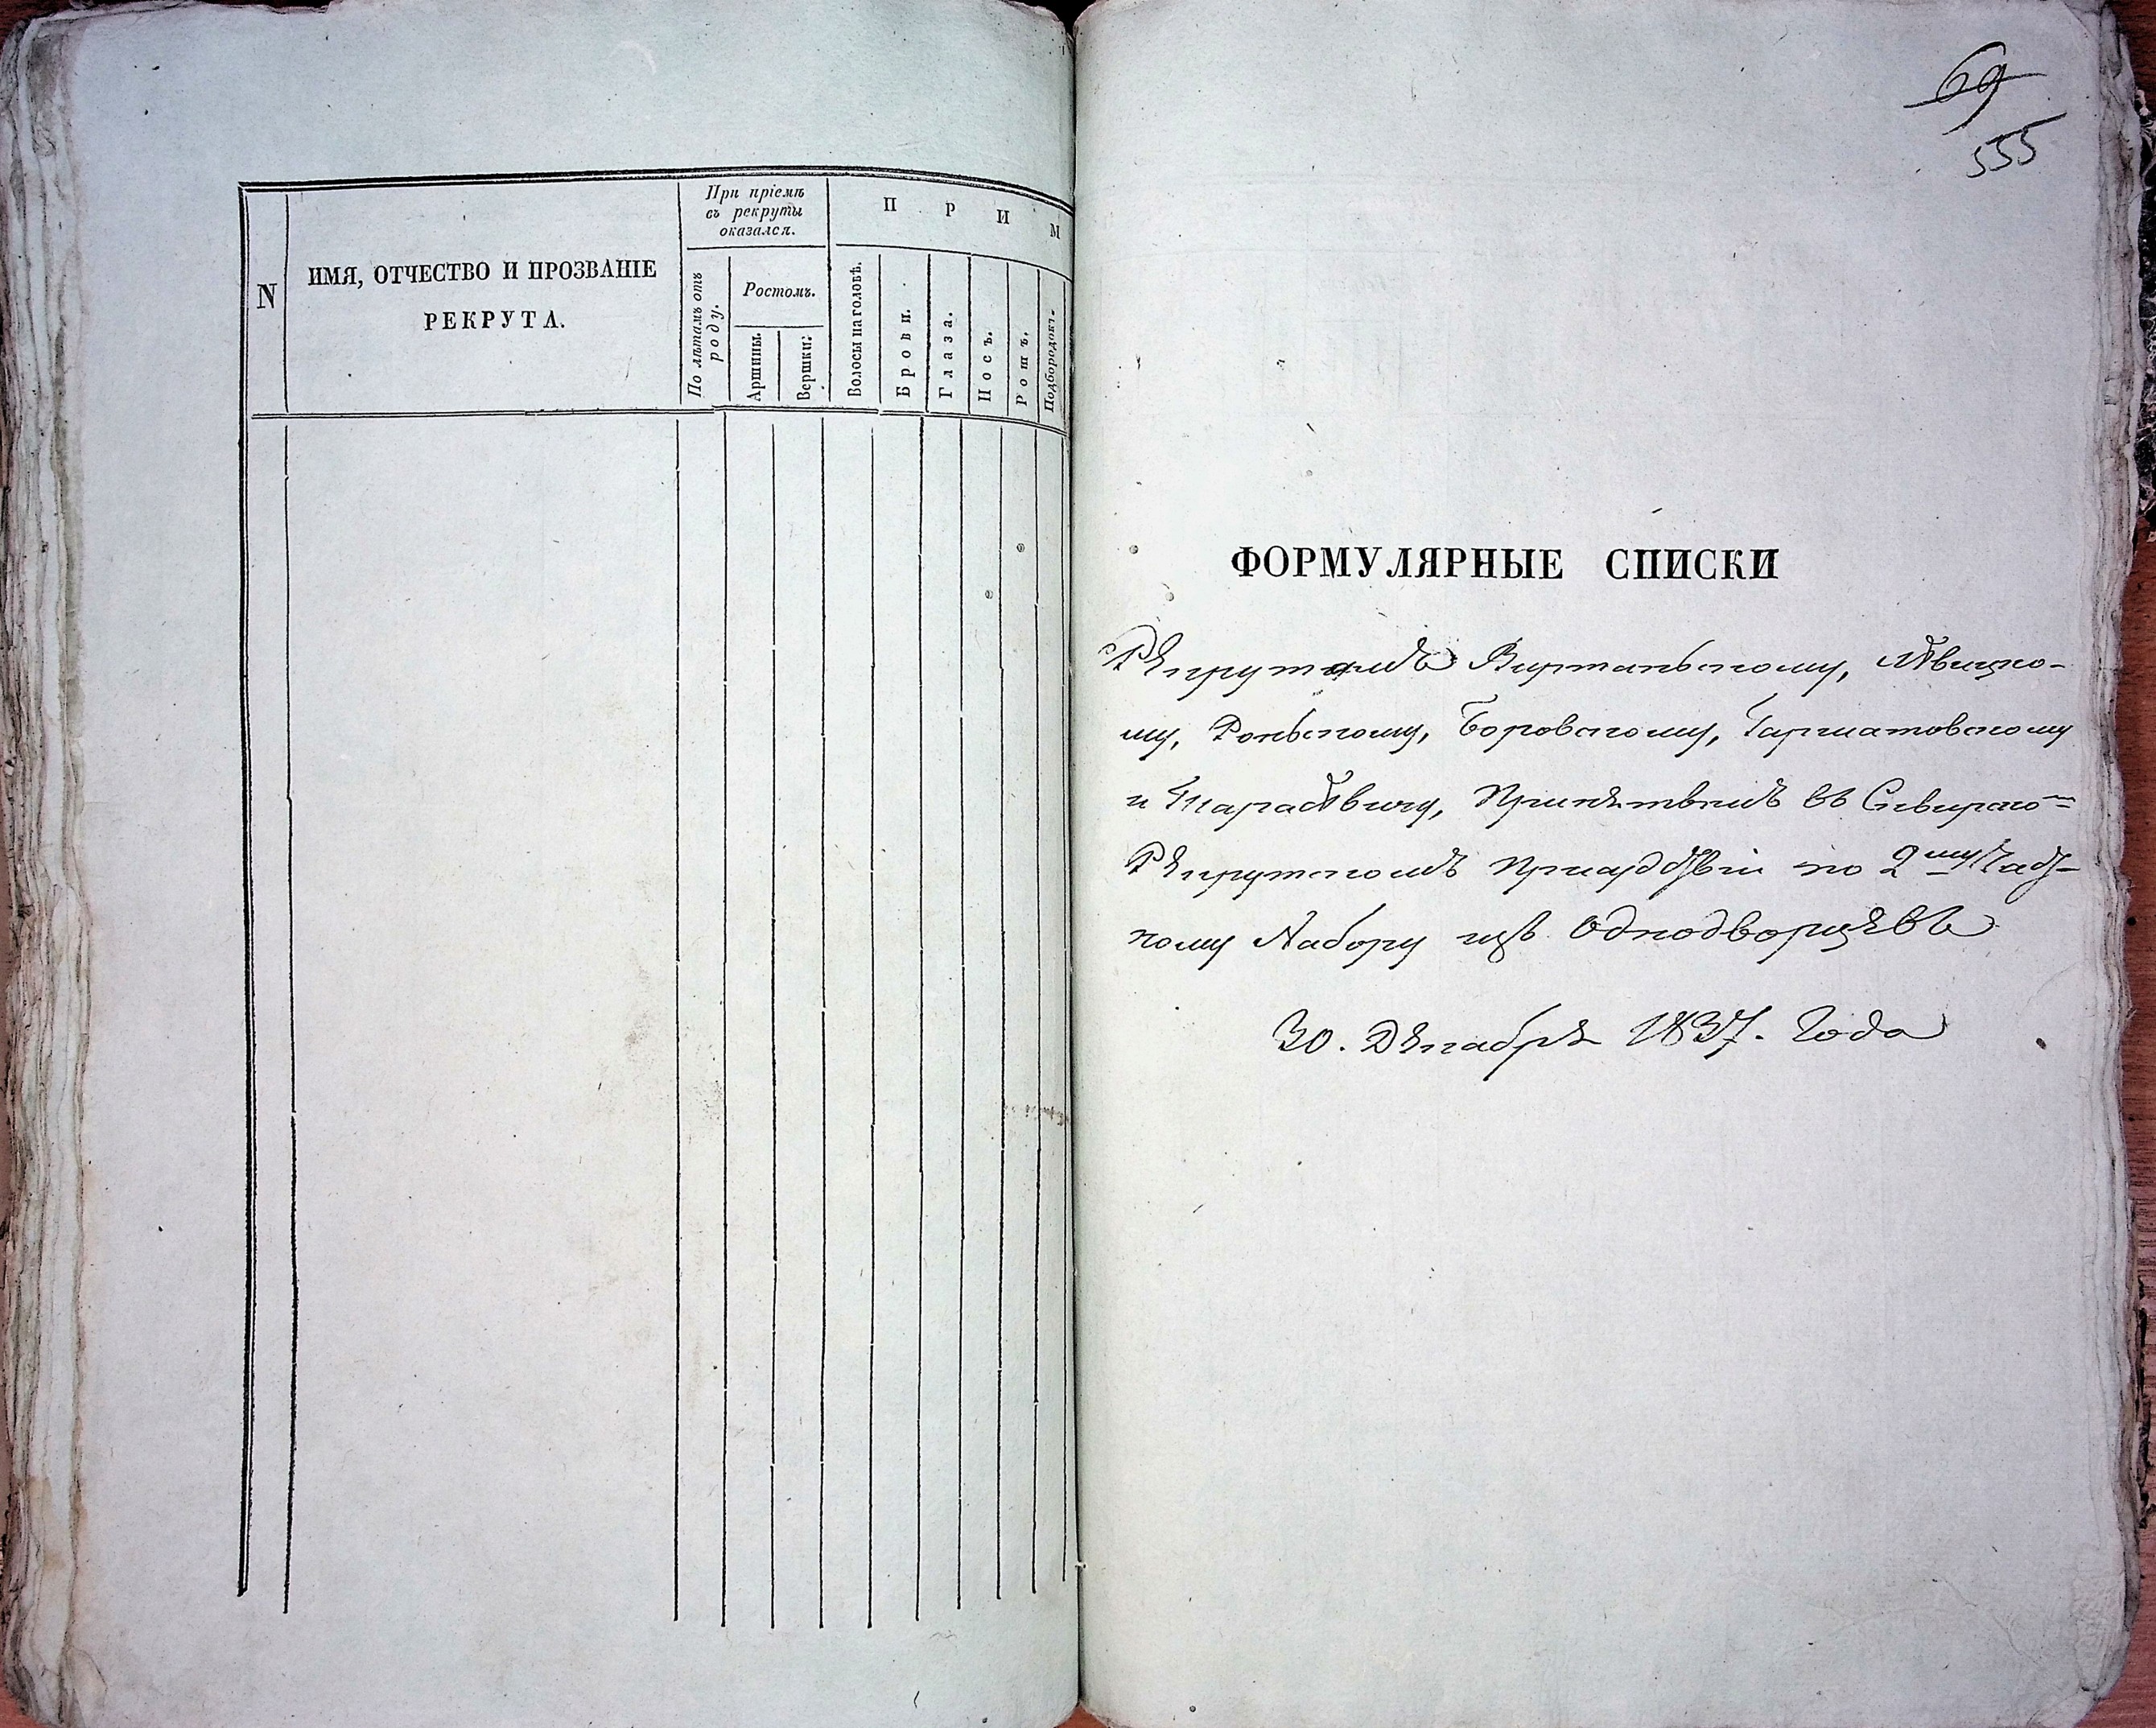 N
ИМЯ, ОТЧЕСТВО И ПРОЗВАНІЕ
РЕКРУТА.
При пріемѣ
въ рекруты
оказался.
По лѣтамъ отъ
роду.
Ростомъ.
Аршины.
Вершки.
П Р И М
Волосы на головѣ.
Брови.
Глаза.
Носъ.
Ротъ.
Подбородокъ
69
555
ФОРМУЛЯРНЫЕ СПИСКИ
Рекрутамъ
му, Боровскому,
и Принятымъ въ
Рекрутскомъ по 2му
кому Набору изъ Однодворцевъ
30. Декабря 1837. Года